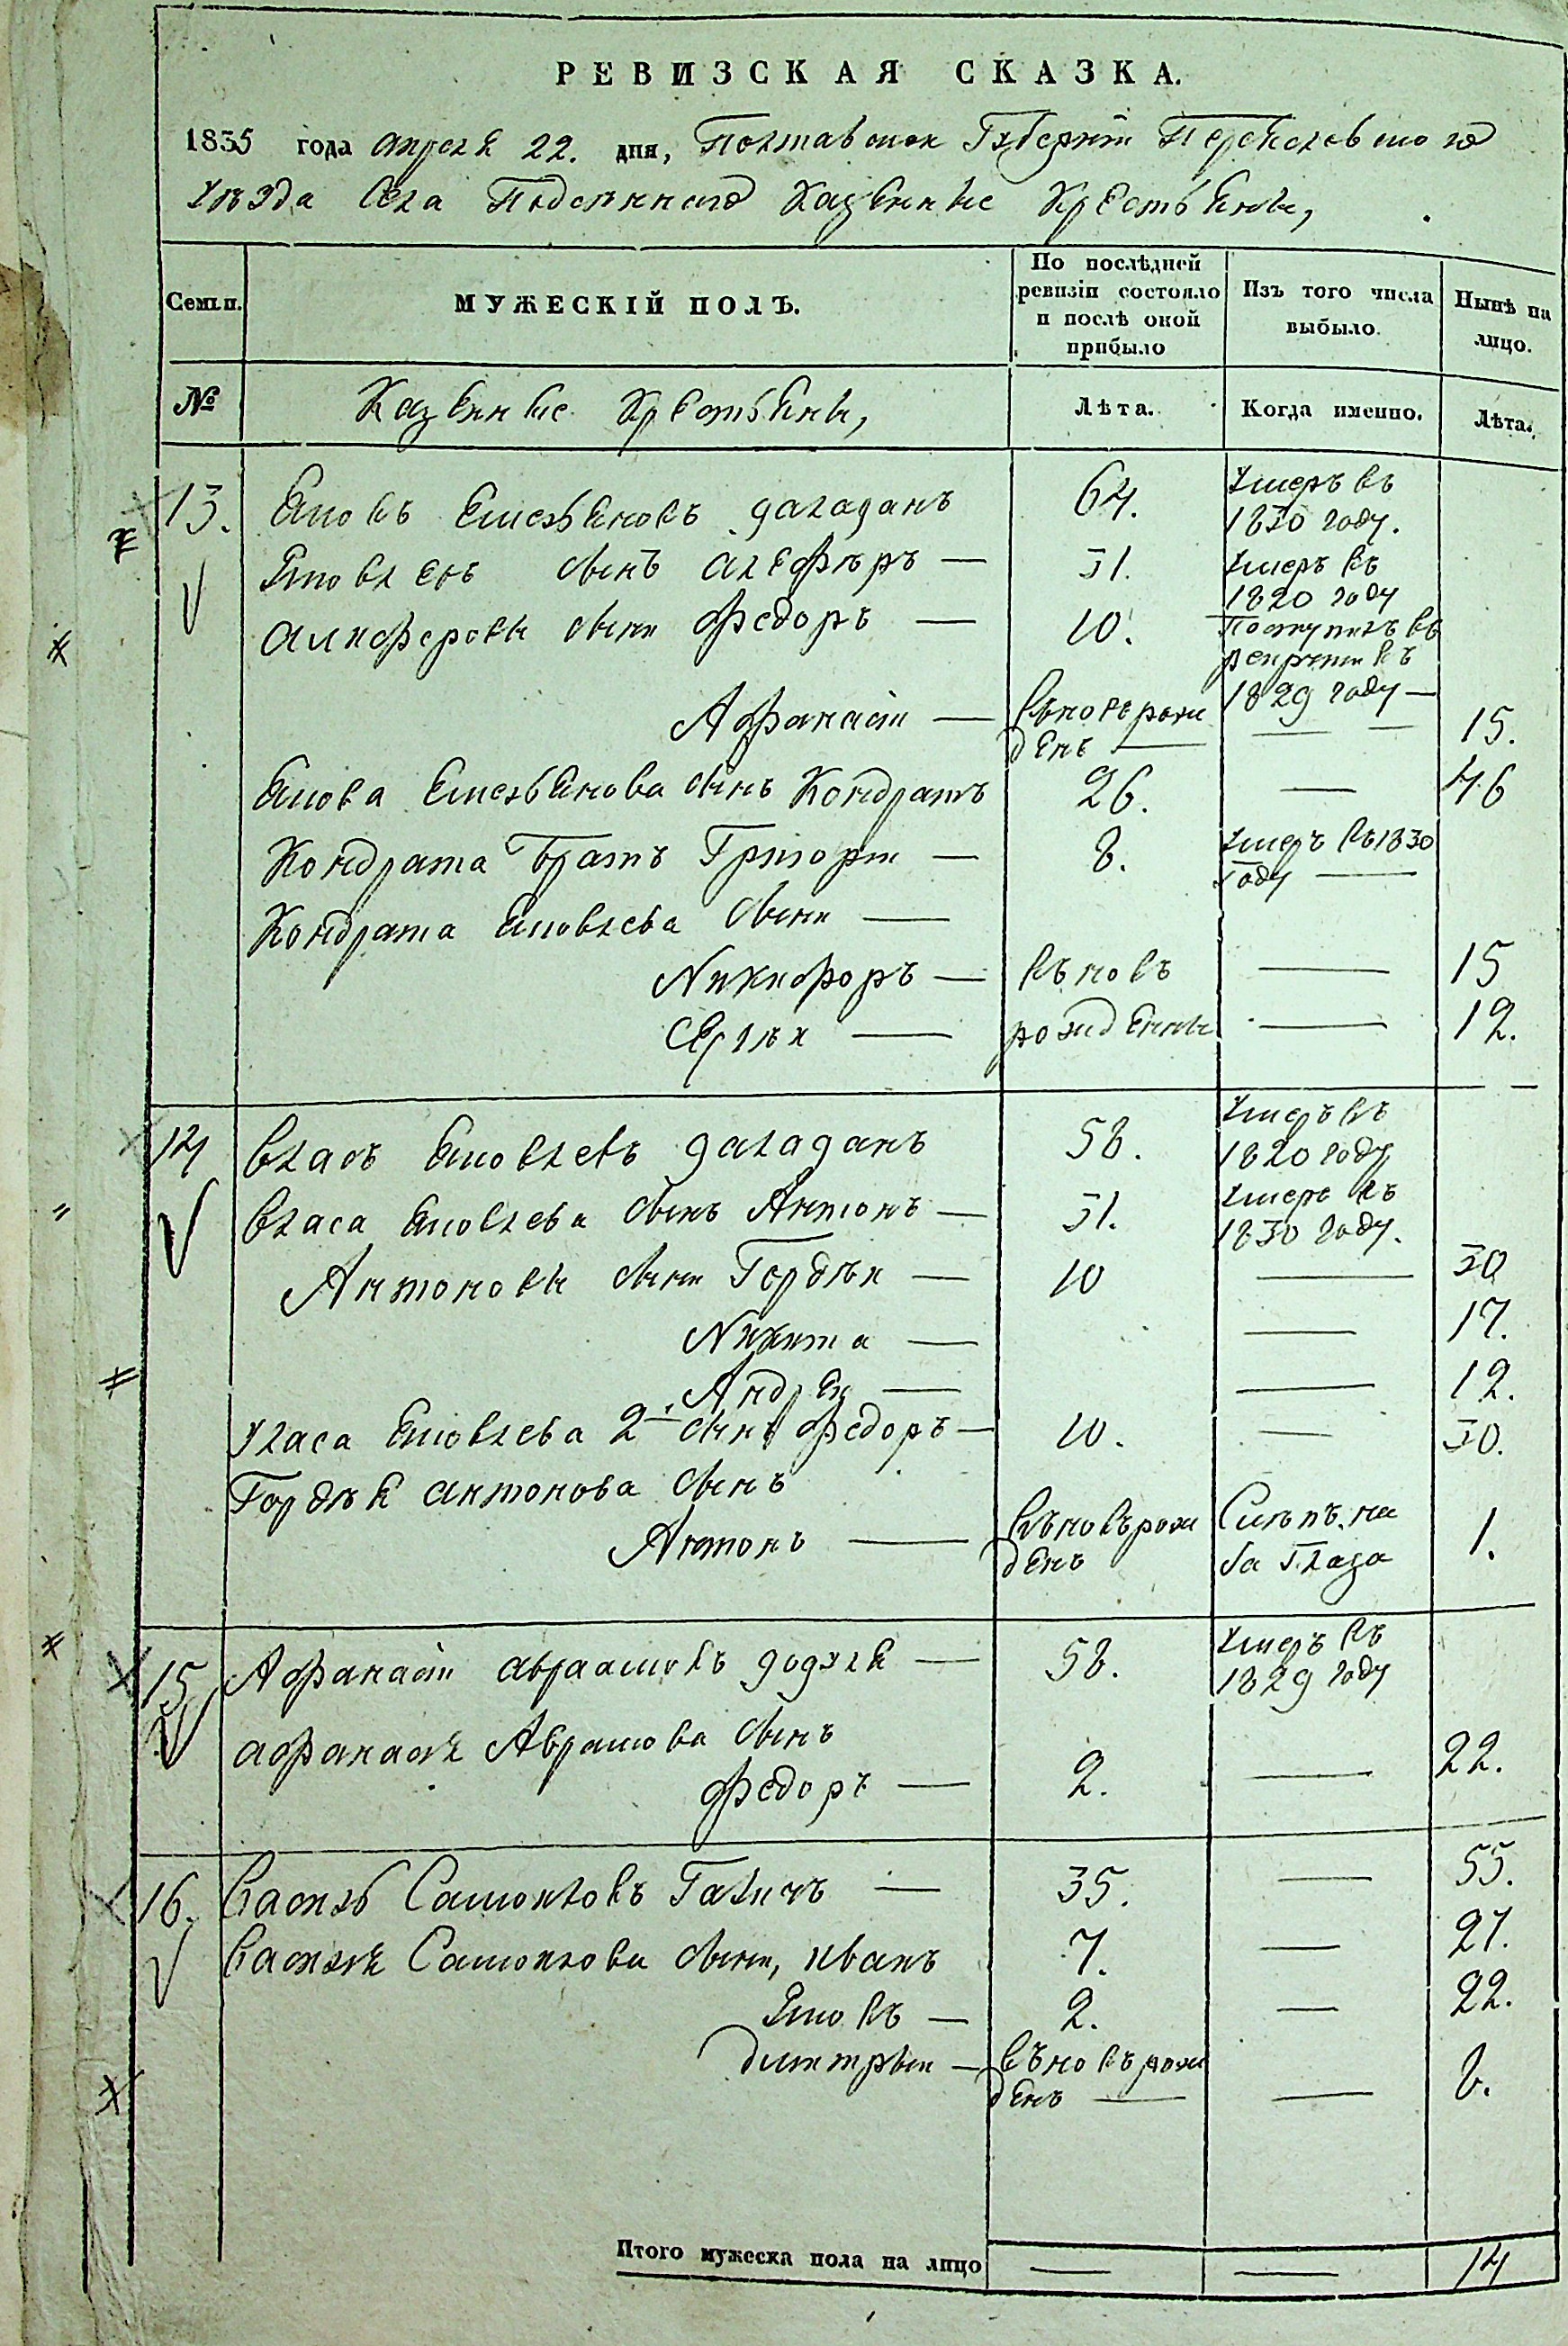 РЕВИЗСКАЯ СКАЗКА.
1835 года апреля 22. дня, Полтавской Губерніи Переяславского
уѣзда Села Подсеннаго Казенные Крестьяне,
Семьи.
МУЖЕСКІЙ ПОЛЪ.
По послѣдней ревизіи состояло и послѣ оной прибыло
Изъ того числа выбыло.
Нынѣ на лицо.
№
Казенные Крестьяне,
Лѣта.
Когда именно.
Лѣта.
13. Яковъ Емельяновъ 64. Умеръ въ
1830 году.
Яковлевъ сынъ Алефѣръ — 31. Умеръ въ
1820 году
Алиферовы сыни Федоръ — 10. Поступилъ въ
рекруты въ
1829 году —
Афанасій — вновьрож
денъ — — 15.
Якова Емельянова сынъ Кондратъ 26. — 46
Кондрата Братъ Григорій — 8. Умеръ въ 1830
году —
Кондрата Яковлева сыни —
Никифоръ — вьновъ — 15
Сергѣй — рожденны — 12.
14 Власъ Яковлевъ 58. Умеръ въ
1820 году
Власа Яковлева сынъ Антонъ — 31. Умеръ въ
1830 году.
Антоновы сыни Гордѣй — 10 — 30
Никита — — 17.
Андрей — — 12.
Уласа Яковлева 2й сынъ Федоръ — 10. — 30.
Гордѣя Антонова сынъ
Антонъ — вьновьрож
денъ
Слѣпъ на
ба Глаза 1.
15 Афанасій Авраамовъ — 58. Умеръ въ
1829 году
Афанасія Аврамова сынъ
Федоръ — 2. — 22.
16. Василь Самойловъ Галичъ — 35. — 55.
Василія Самойлова сыни, Иванъ 7. — 27.
Яковъ — 2. — 22.
Дмитрій — вьновьрож
денъ — — 8.
Итого мужеска пола на лицо — — 14